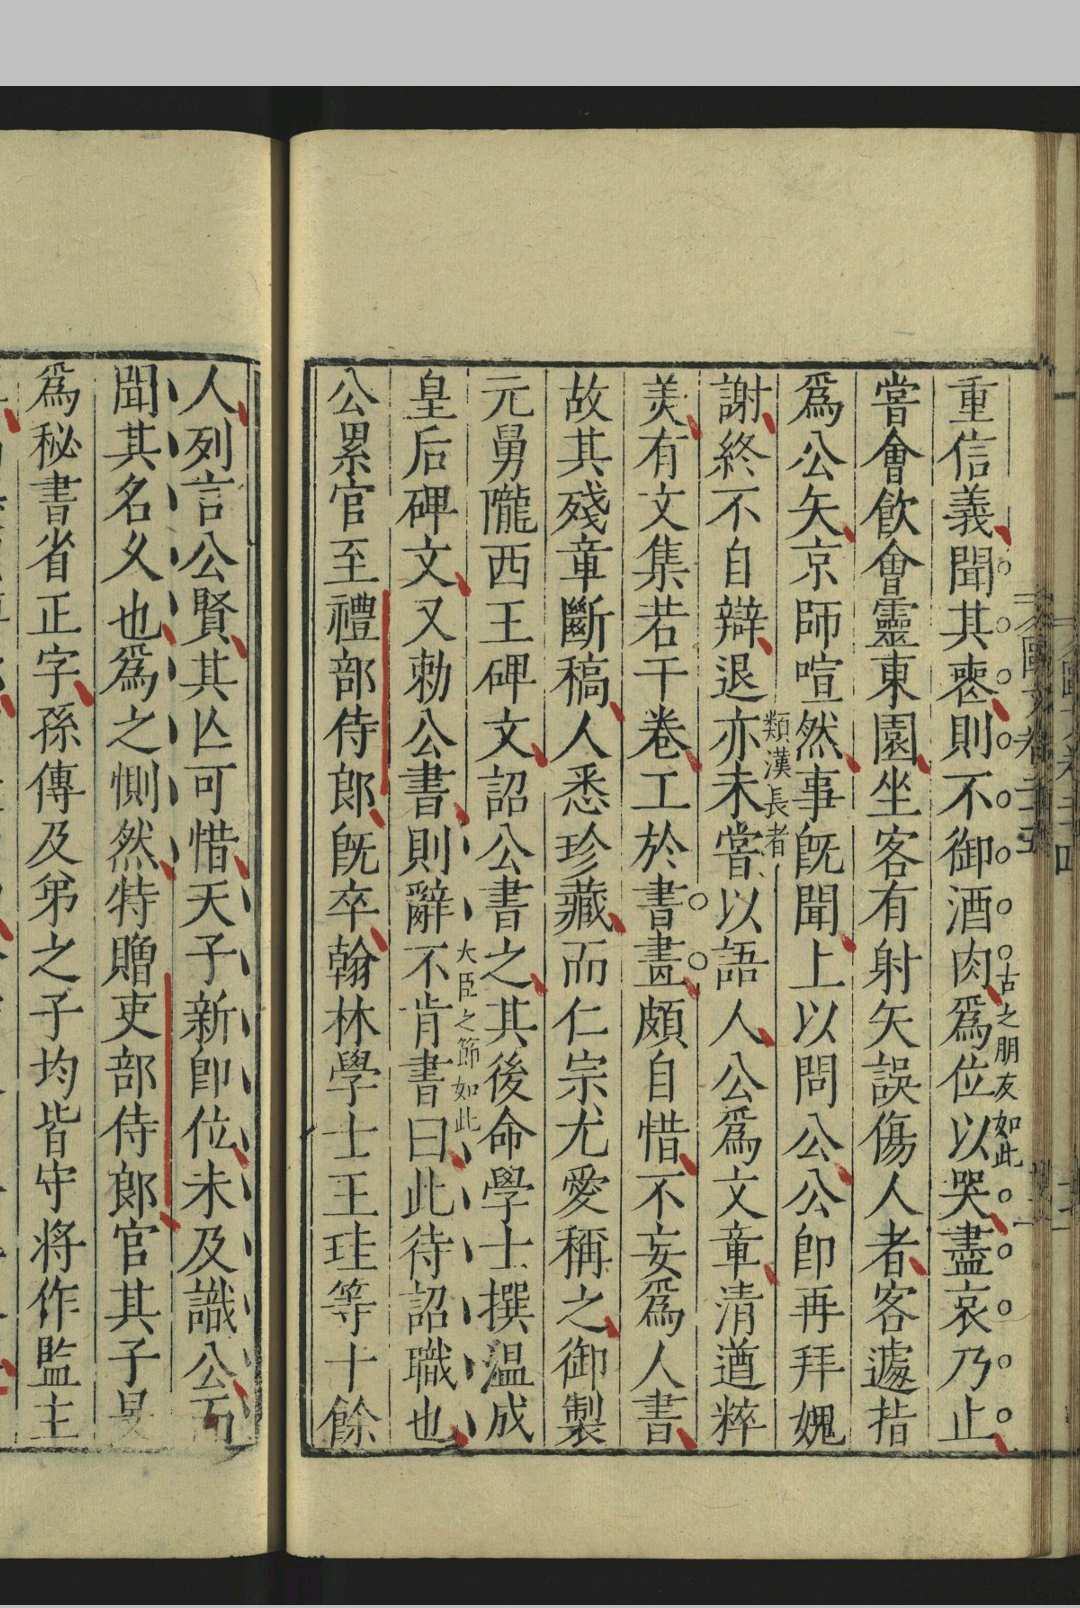 重信義聞其喪則不御酒肉爲位以哭盡哀乃止
古之朋友如此
嘗會飲會靈東園坐客有射矢誤傷人者客遽指
爲公矢京師喧然事旣聞上以問公公卽再拜媿
謝終不自辯退亦未嘗以語人公爲文章清遒粹
類漢長者
美有文集若干卷工於書畫頗自惜不妄爲人書
故其殘章斷稿人悉珍藏而仁宗尤愛稱之御製
元舅隴西王碑文詔公書之其後命學士撰温成
皇后碑文又勅公書則辭不肯書曰此待詔職也
大臣之節如此
公累官至禮部侍郎旣卒翰林學士王珪等十餘
人列言公賢其亾可惜天子新卽位未及識公而
聞其名久也爲之惻然特贈吏部侍郎官其子旻
爲秘書省正字孫傳及弟之子均皆守將作監主